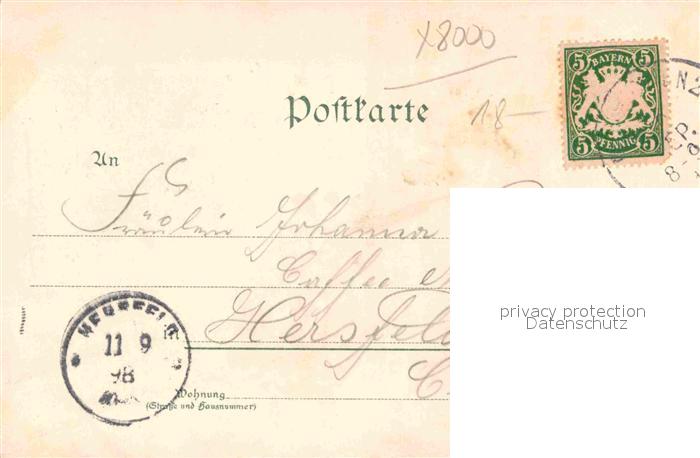 x8000
5 BAYERN 5
5 PFENNIG 5
EP.
Postkarte
18-
An
Fräulein Johanna
Caffee
Hersfeld
HERSFELD
11 9
98
in
C.
Wohnung
(Straße und Hausnummer)
privacy protection
Datenschutz